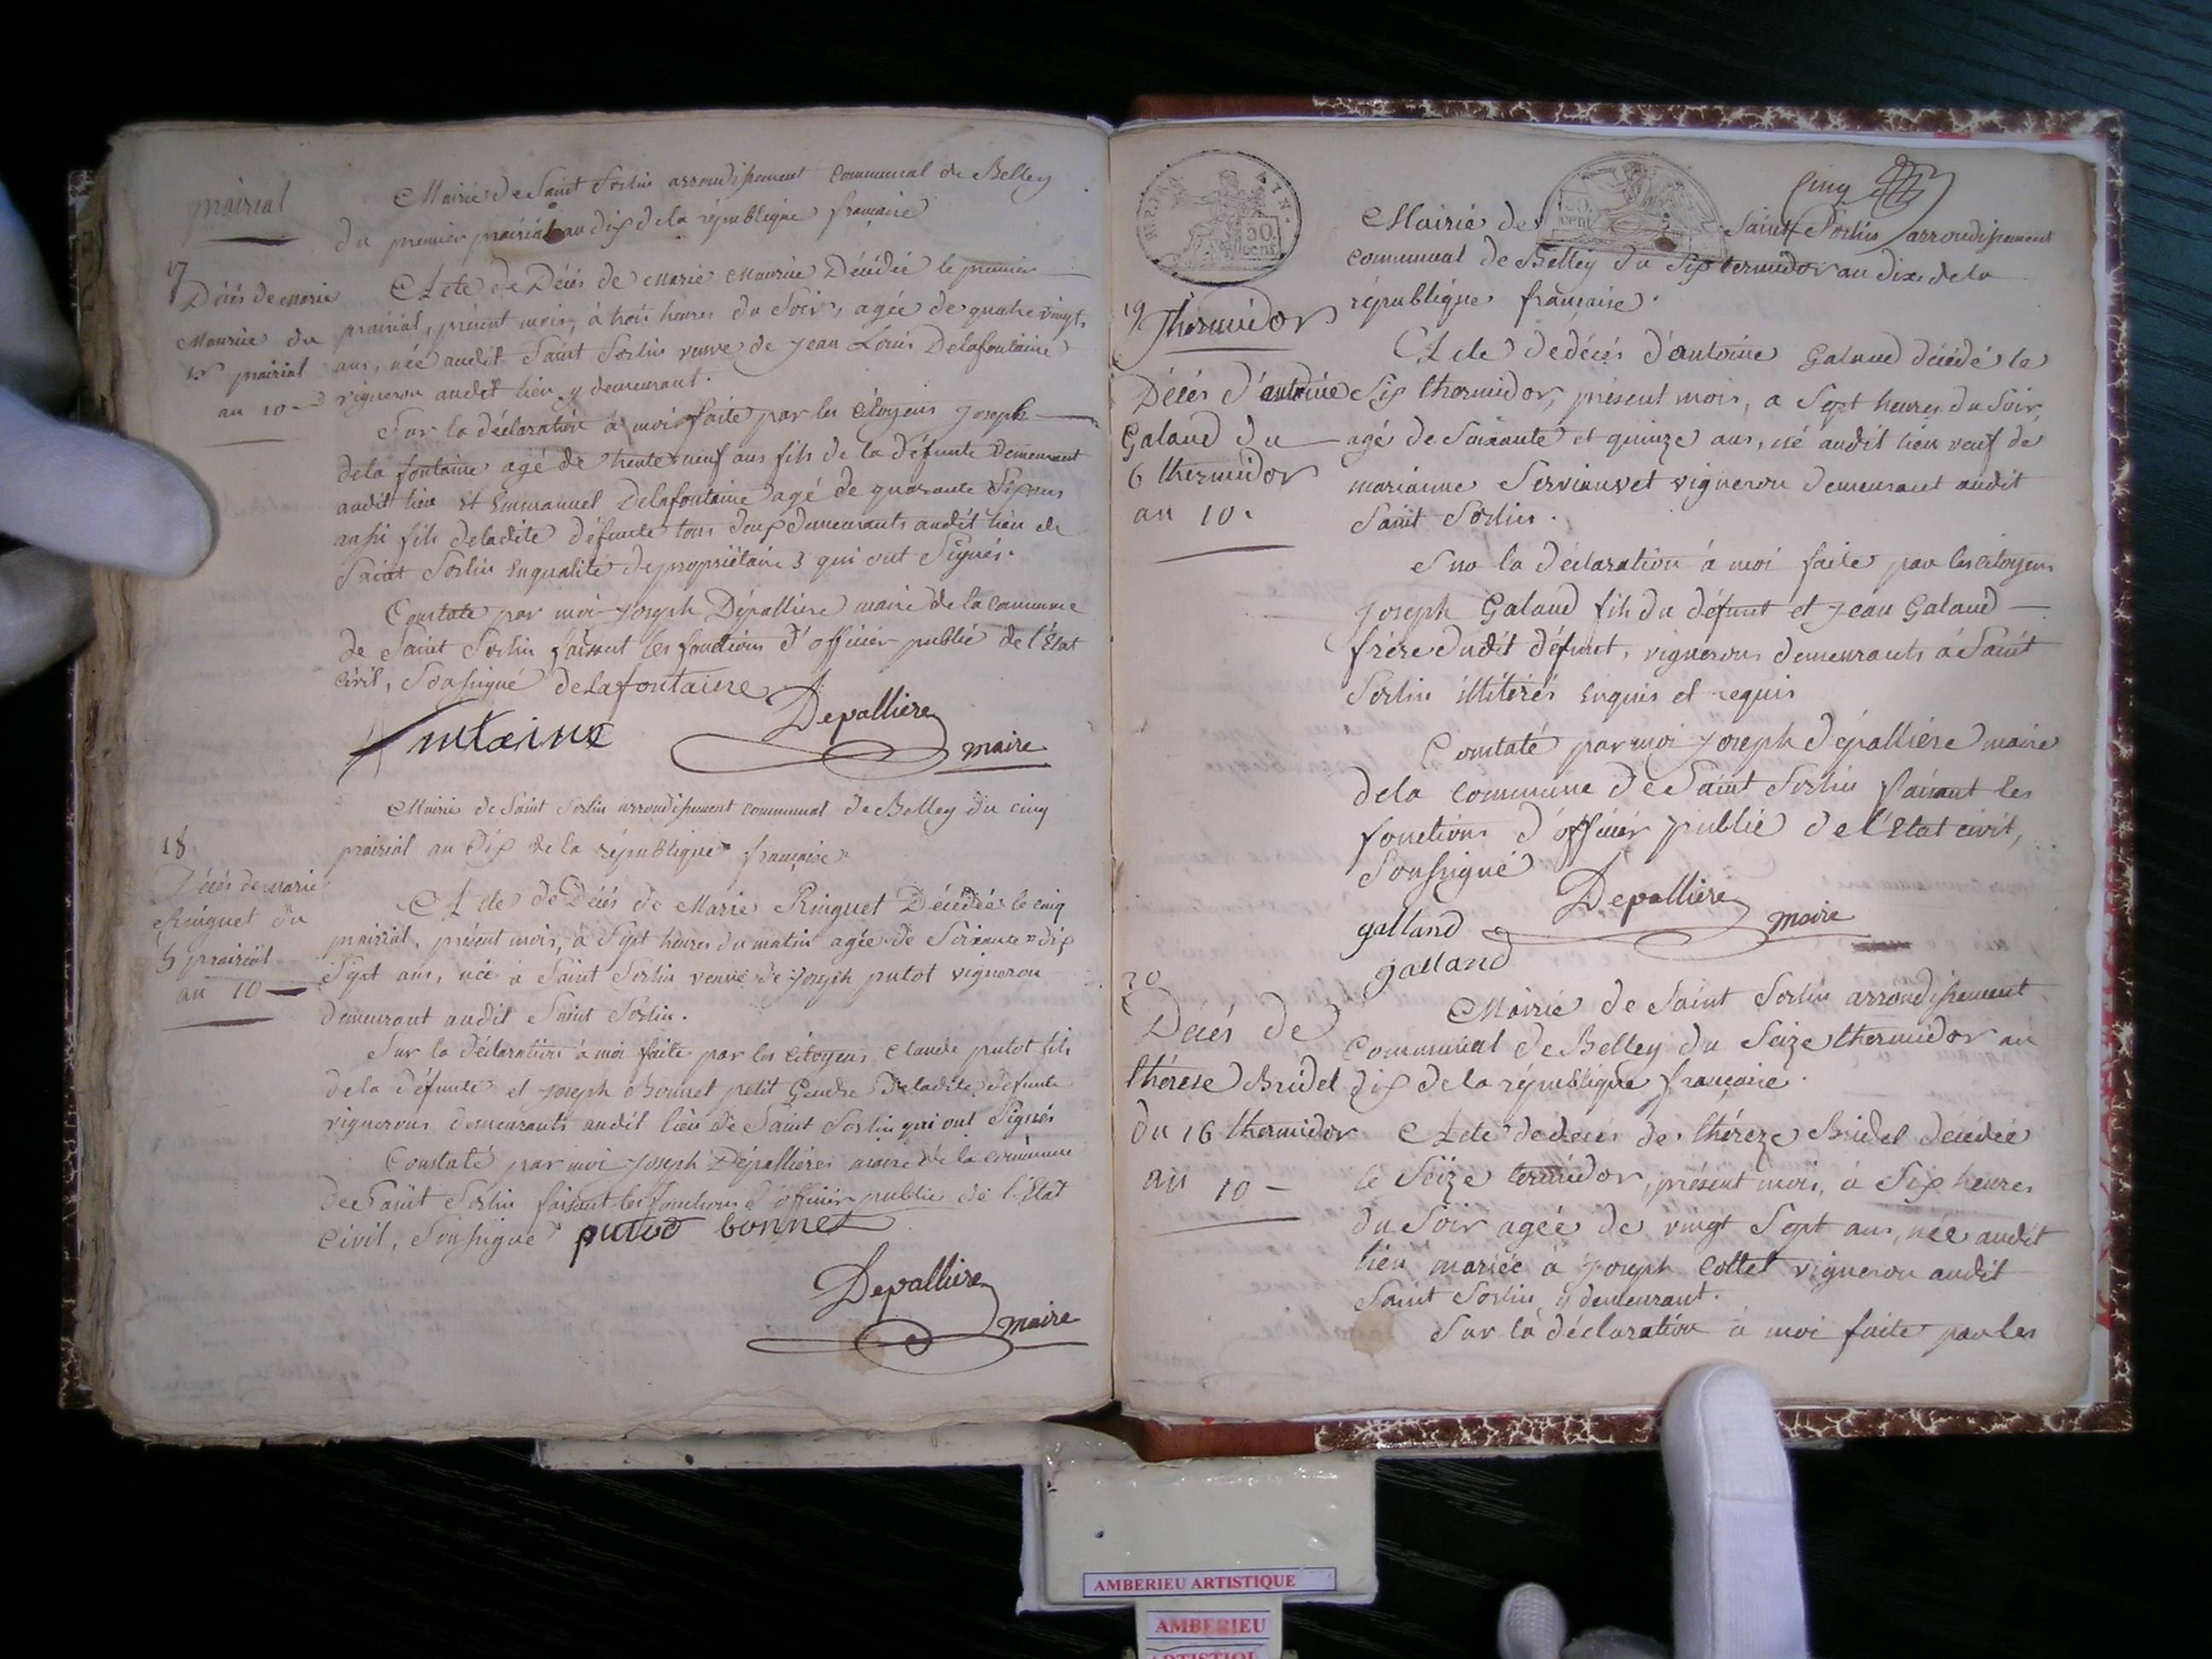 prairial
Mairie de Saint Sorlin arrondissement communal de Belley
du premier prairial an dix de la république française
17
Décés de marie
Maurice du
1er prairial
an 10
Acte de Décés de Marie Maurice Décédée le premier
prairial, présent mois, à trois heures du Soir, agée de quatre vingt
ans, née audit Saint Sorlin veuve de Jean Louis Delafontaine
vigneron audit lieu y demeurant.
Sur la déclaration à moi faite par les citoyens Joseph
dela fontaine agé de trente neuf ans fils de la défunte demeurant
audit lieu et Emmanuel Delafontaine agé de quarante Six ans
aussi fils deladite défunte tous deux demeurants audit lieu de
Saint Sorlin En qualité de propriétaires qui ont Signés.
Constaté par moi Joseph Dépalliere maire de la commune
de Saint Sorlin faisant les fonctions d'officier public de l'État
civil, Soussigné delafontaine
Depalliere
maire
18
Décés de marie
Ringuet du
5 prairial
an 10
Mairie de Saint Sorlin arrondissement communal de Belley du cinq
prairial an dix de la république française
Acte de Décés de Marie Ringuet Décédée le cinq
prairial, présent mois, à Sept heures du matin agée de Soixante dix
Sept ans, née à Saint Sorlin veuve de Joseph putot vigneron
demeurant audit Saint Sorlin.
Sur la déclaration à moi faite par les citoyens Claude putot fils
de la défunte et Joseph Bonnet petit Gendre deladite défunte
vignerons demeurants audit lieu de Saint Sorlin qui ont Signés
Constaté par moi Joseph Dépalliere maire de la commune
de Saint Sorlin faisant les fonctions d'officier public de l'État
civil, Soussigné putod bonnet
Depalliere
maire
50 cent
Cinq
Mairie de Saint Sorlin arrondissement
communal de Belley du Six termidor an dix de la
république française.
19
Thermidor
Décés d'antoine
Galand du
6 thermidor
an 10.
Acte de décés d'antoine Galand décédé le
Six thermidor, présent mois, a Sept heures du Soir,
agé de Soixante et quinze ans, né audit lieu veuf de
marianne Servianvet vigneron demeurant audit
Saint Sorlin.
Sur la déclaration à moi faite par les citoyens
Joseph Galand fils du défunt et Jean Galand
frère dudit défunt, vignerons demeurants à Saint
Sorlin illitérés Enquis et requis
Constaté par moi Joseph dépalliére maire
dela commune de Saint Sorlin faisant les
fonctions d'officier public de l'Etat civil,
Soussigné
Depalliere
maire
galland
galland
20
Décés de
thérese Bridel
du 16 thermidor
an 10
Mairie de Saint Sorlin arrondissement
Communal de Belley du Seize thermidor an
dix de la république française.
Acte de décés de théreze Bridel décédée
le Seize termidor, présent mois, à Six heures
du Soir agée de vingt Sept ans, née audit
lieu mariée à Joseph Collet vigneron audit
Saint Sorlin y demeurant.
Sur la déclaration à moi faite par les
AMBERIEU ARTISTIQUE
AMBERIEU
ARTISTIQUE